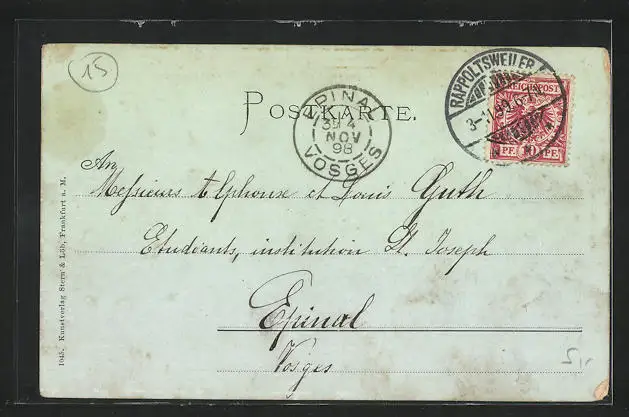 15
POSTKARTE.
EPINAL
3E 4
NOV
98
VOSGES
RAPPOLTSWEILER
REICHSPOST
PF. 10 PF.
An
Messieurs Alphonse et Louis Guth
Etudiants, institution St. Joseph
Epinal
Vosges
1045. Kunstverlag Stern & Löb, Frankfurt a. M.